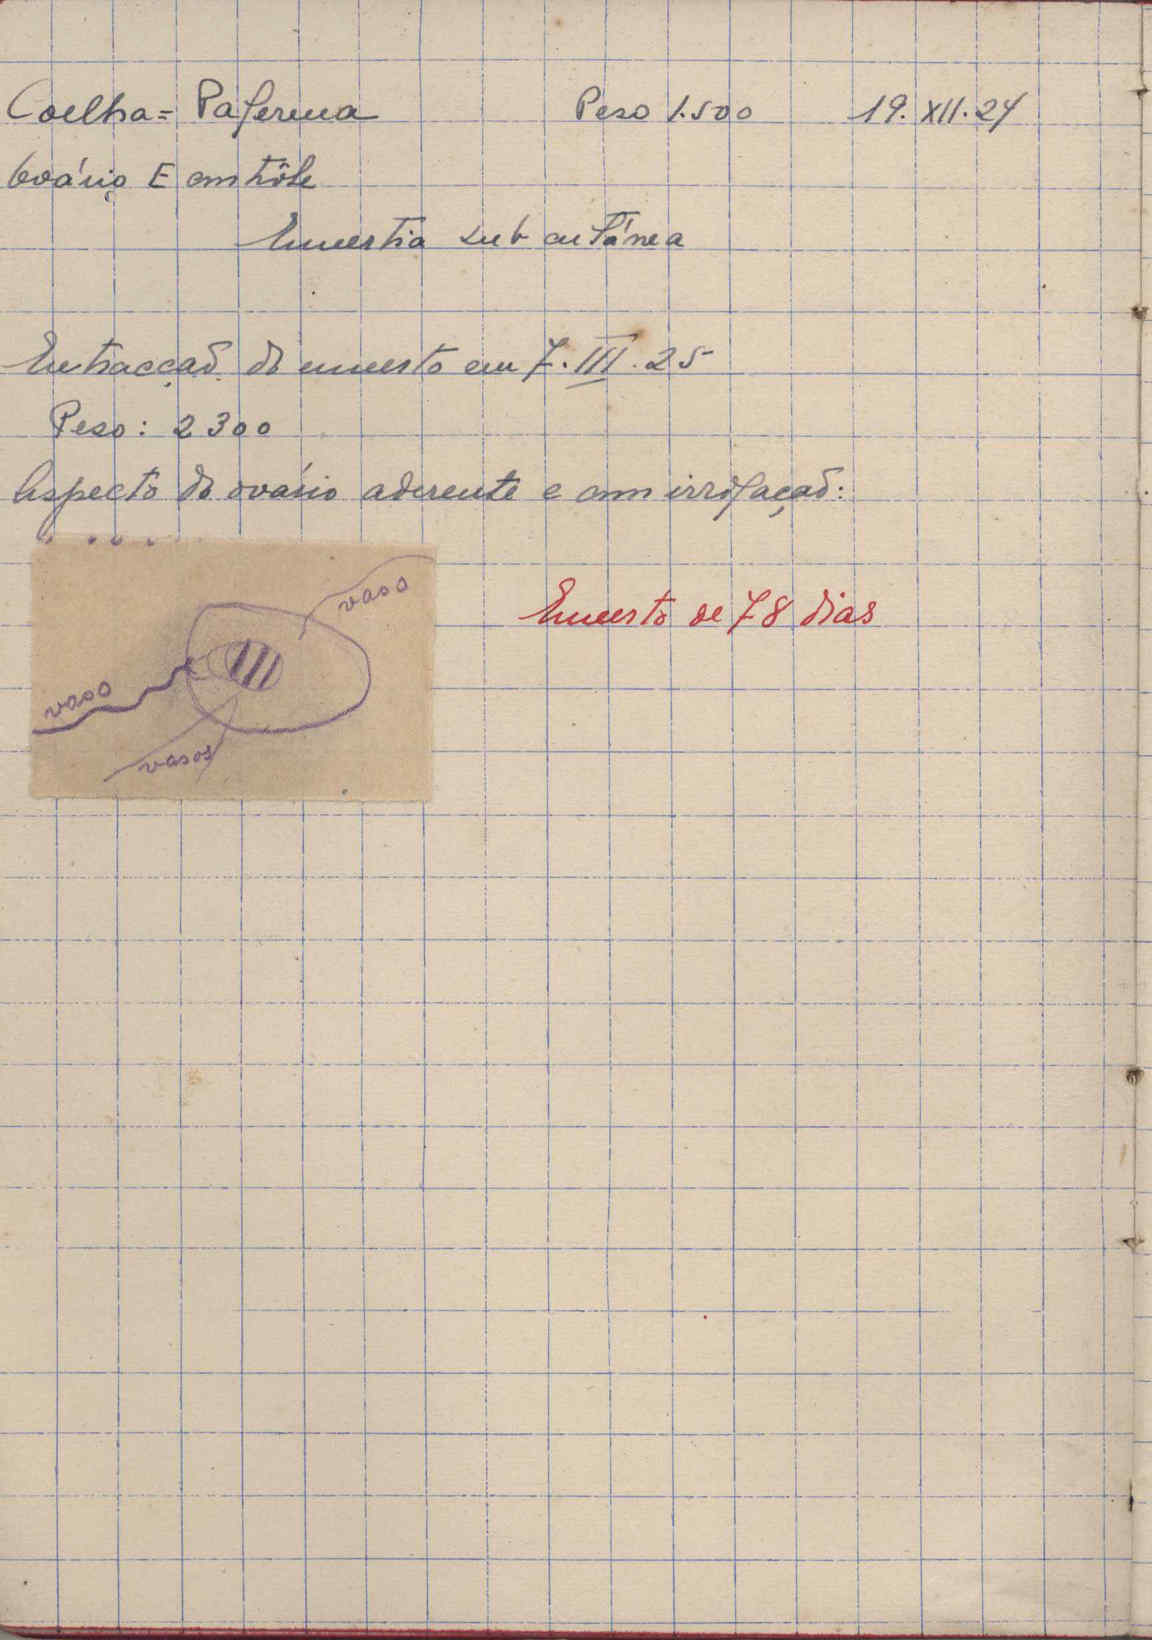 Coelha = Paferma Peso 1.500 19.XII.24
Ovário E contrôle
Enxertia sub cutânea
Extracção do enxerto em 7.III.25
Peso: 2300
Aspecto do ovário aderente e com irrigação:
vaso
Enxerto de 78 dias
vaso
vasos